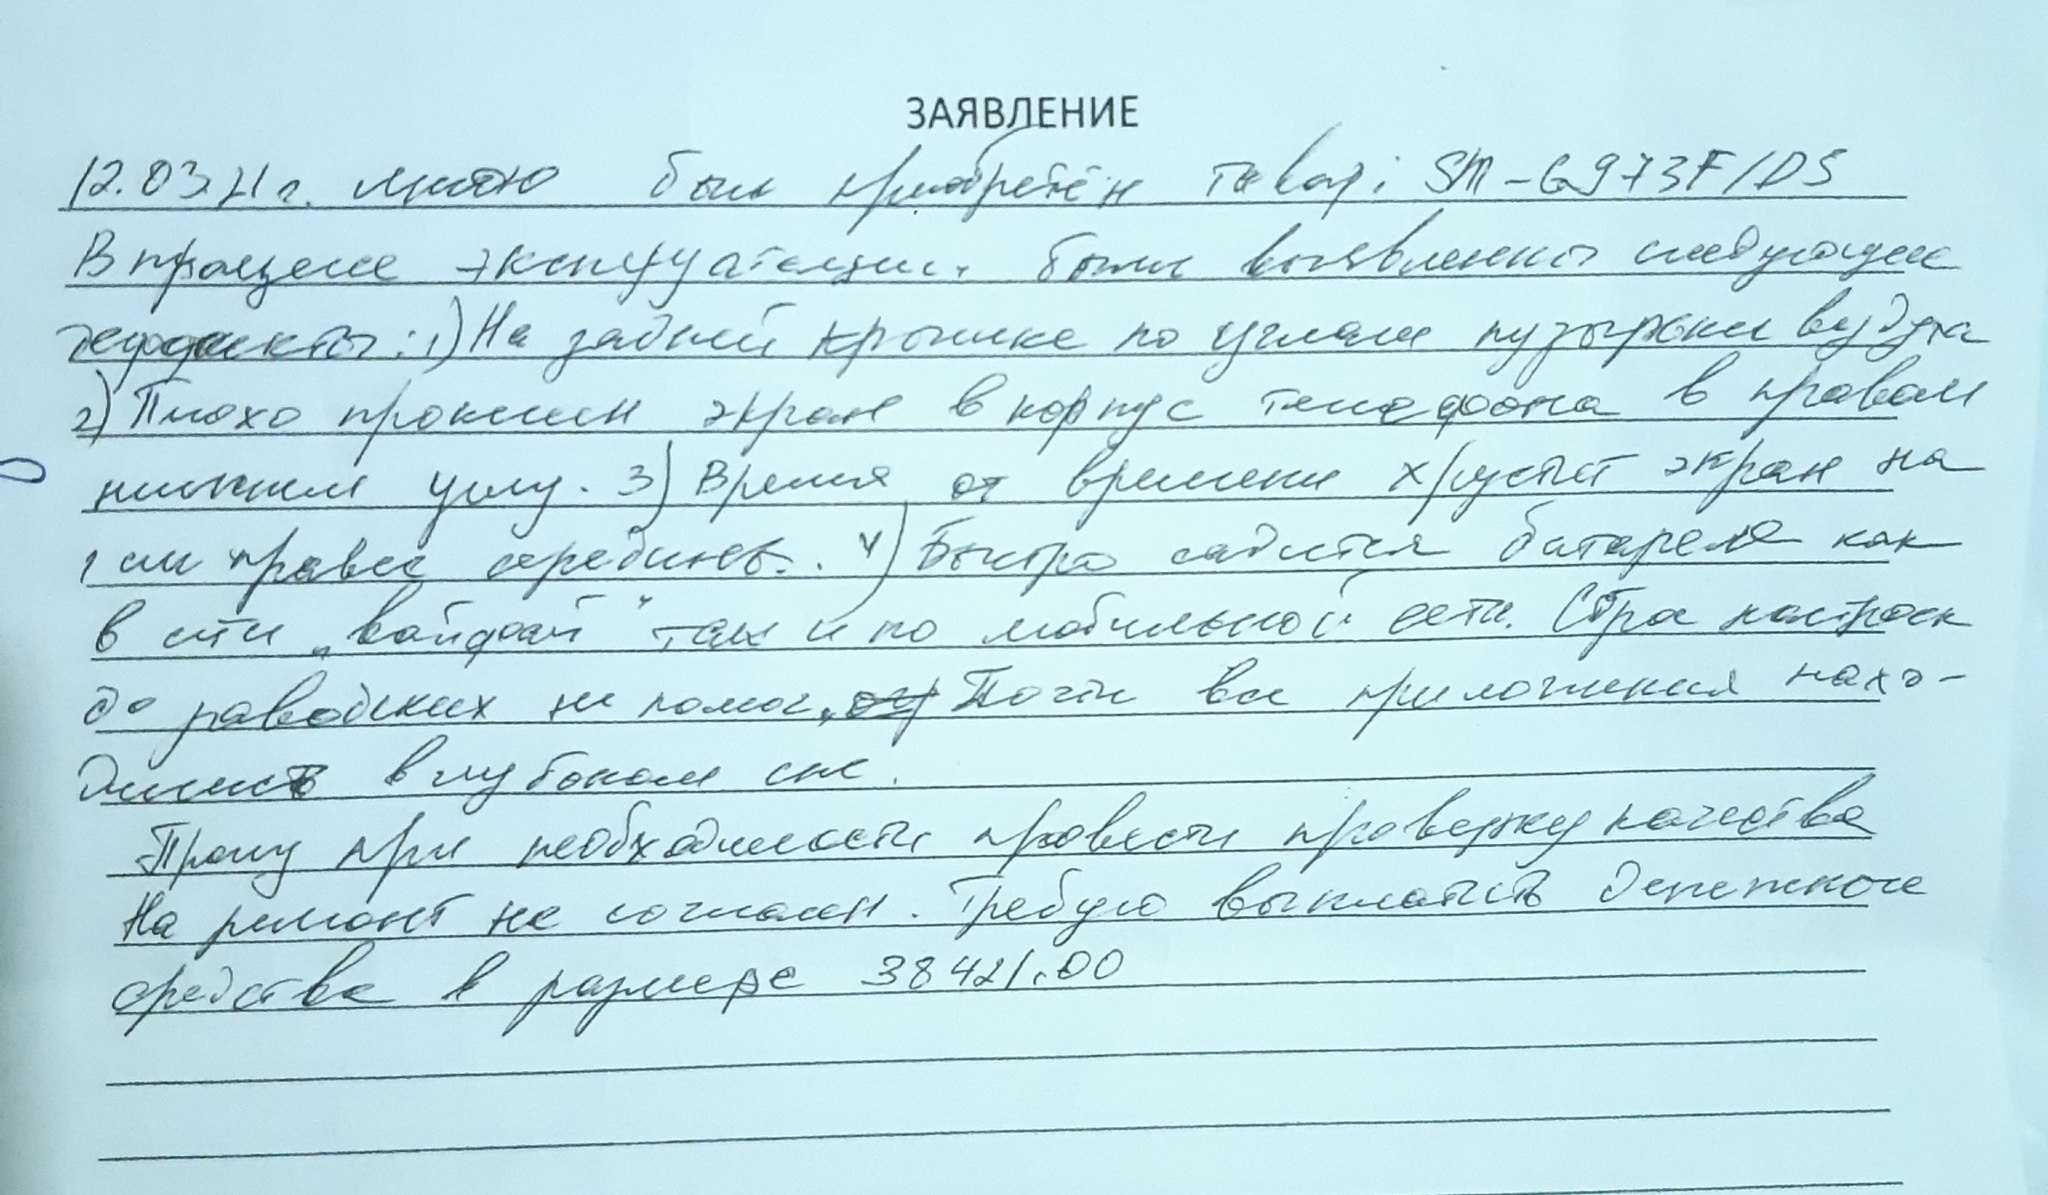 ЗАЯВЛЕНИЕ
12.03.21 г. мною был приобретён товар: SM-G973F/DS
В процессе эксплуатации были выявленны следующие
деффекты: 1) На задней крышке по углам пузырьки воздуха
2) Плохо проклеен экран в корпус телефона в правом
нижнем углу. 3) Время от времени хрустит экран на
1 см правее середины. 4) Быстро садится батарея как
в сети „вайфай" так и по мобильной сети. Сброс настроек
до заводских не помог, Почти все приложения нахо-
дились в глубоком сне.
Прошу при необходимости провести проверку качества
На ремонт не согласен. Требую выплатить денежные
средства в размере 38421.00